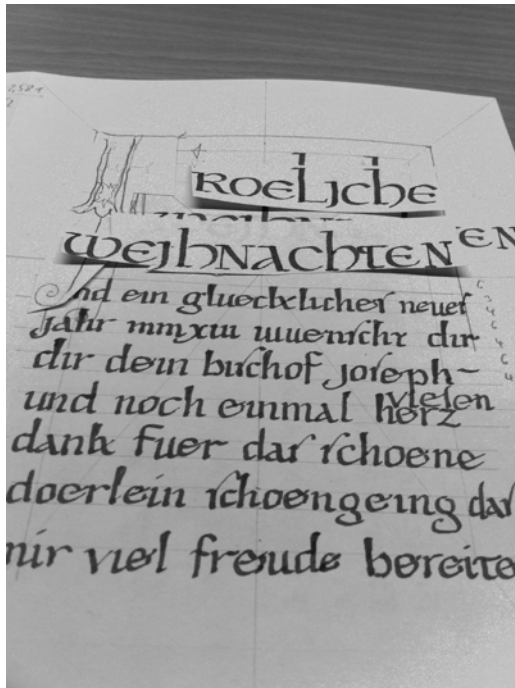 FROELICHE
WEIHNACHTEN EN
und ein glueckliches neues
jahr mmxiii wuenscht dir
dir dein bischof joseph~
und noch einmal herz vielen
dank fuer das schoene
doerlein schoengeing das
mir viel freude bereite